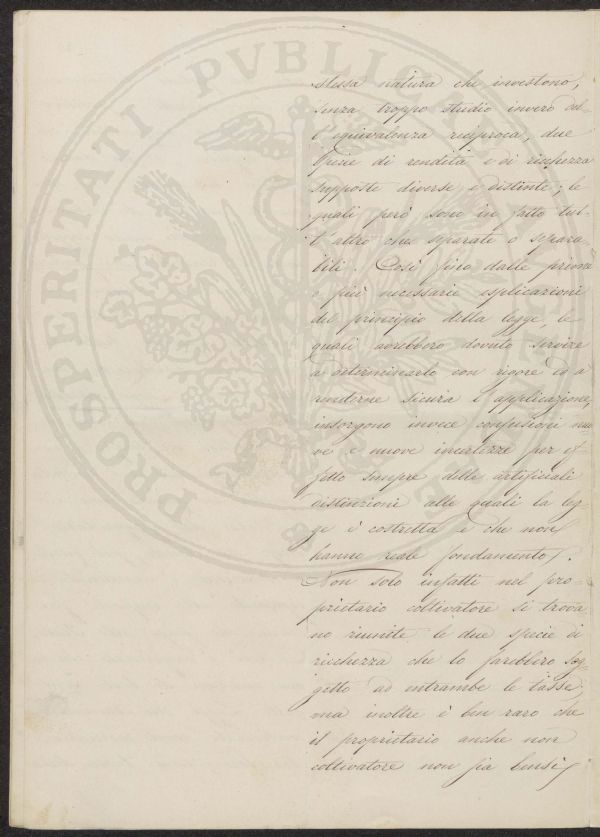 PROSPERITATI PVBLICAE
stessa natura che investono,
senza troppo studio invero del-
l'equivalenza reciproca, due
specie di rendita e di ricchezza
supposte diverse e distinte, le
quali però sono in fatto tut-
t'altro che separate o separa
bili. Così fino dalle prime
e più necessarie esplicazioni
del principio della legge, le
quali avrebbero dovuto servire
a determinarlo con rigore ed a
renderne sicura l'applicazione,
insorgono invece confusioni nuo
ve e nuove incertezze per ef
fetto sempre delle artificiali
distinzioni alle quali la leg
ge è costretta e che non
hanno reale fondamento.
Non solo infatti nel pro-
prietario coltivatore si trova
no riunite le due specie di
ricchezza che lo farebbero sog-
getto ad entrambe le tasse,
ma inoltre è ben raro che
il proprietario anche non
coltivatore non sia bensì